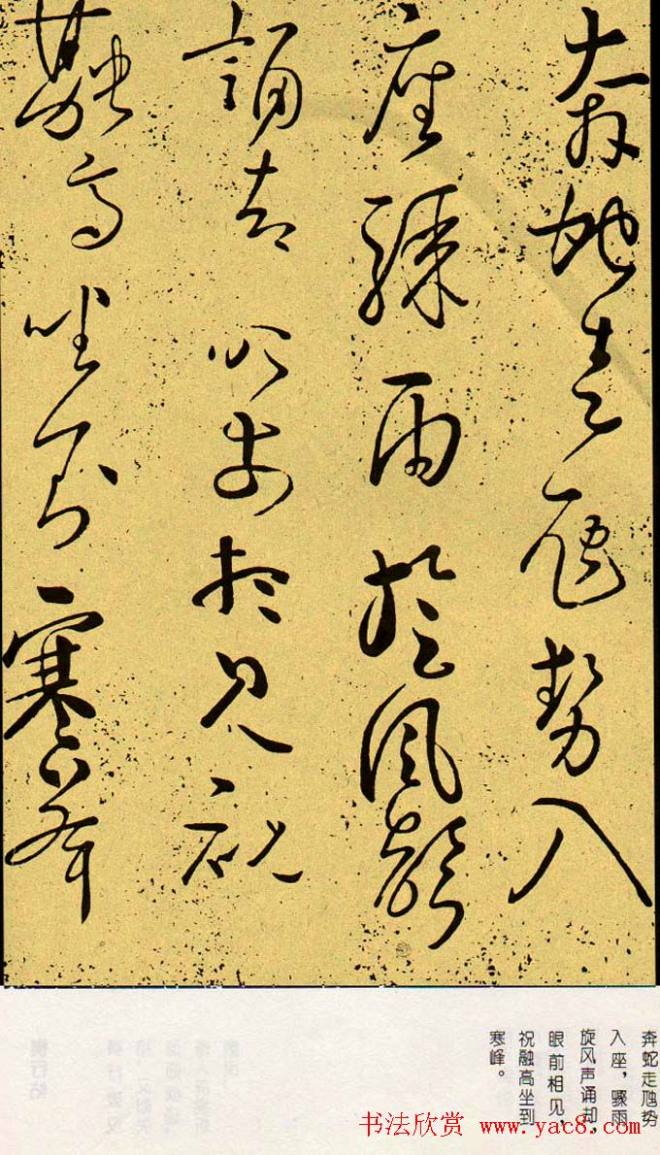 奔蛇走虺勢入
座驟雨旋風聲
誦却眼前相見祝
融高坐到寒峰
奔蛇走虺势
入座，骤雨
旋风声诵却，
眼前相见，
祝融高坐到
寒峰。
书法欣赏 www.yac8.com